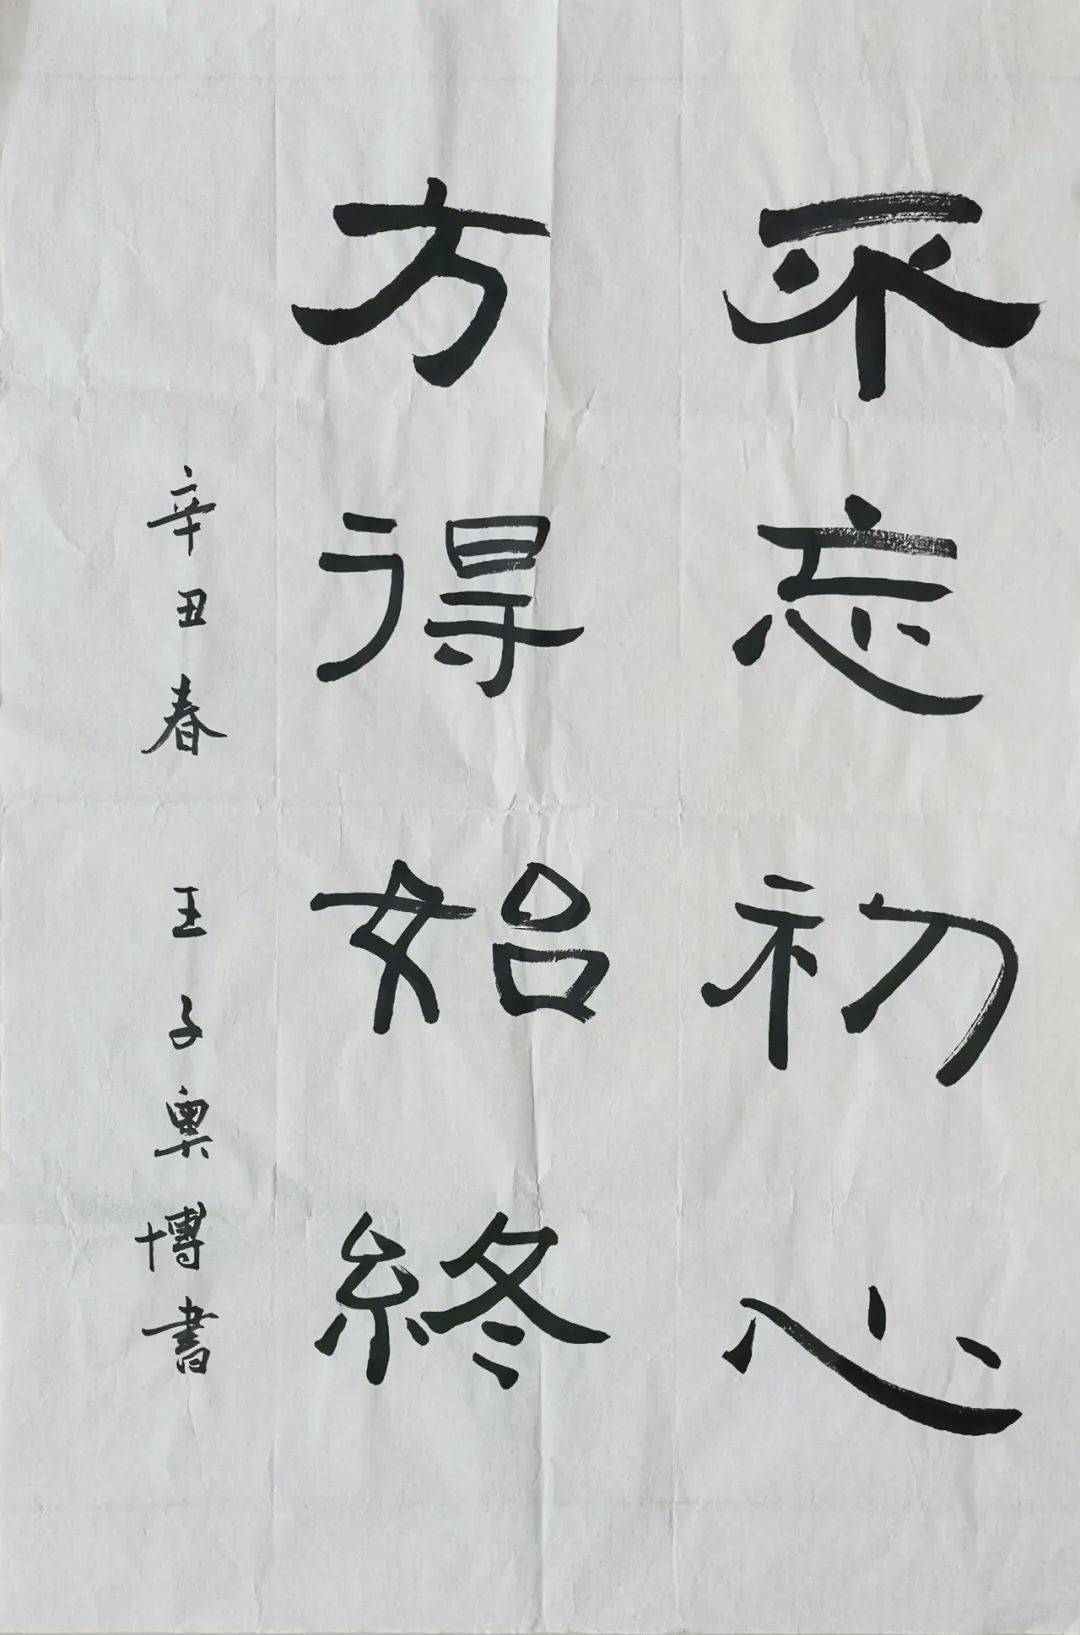 不忘初心
方得始終
辛丑春 王子奥博書